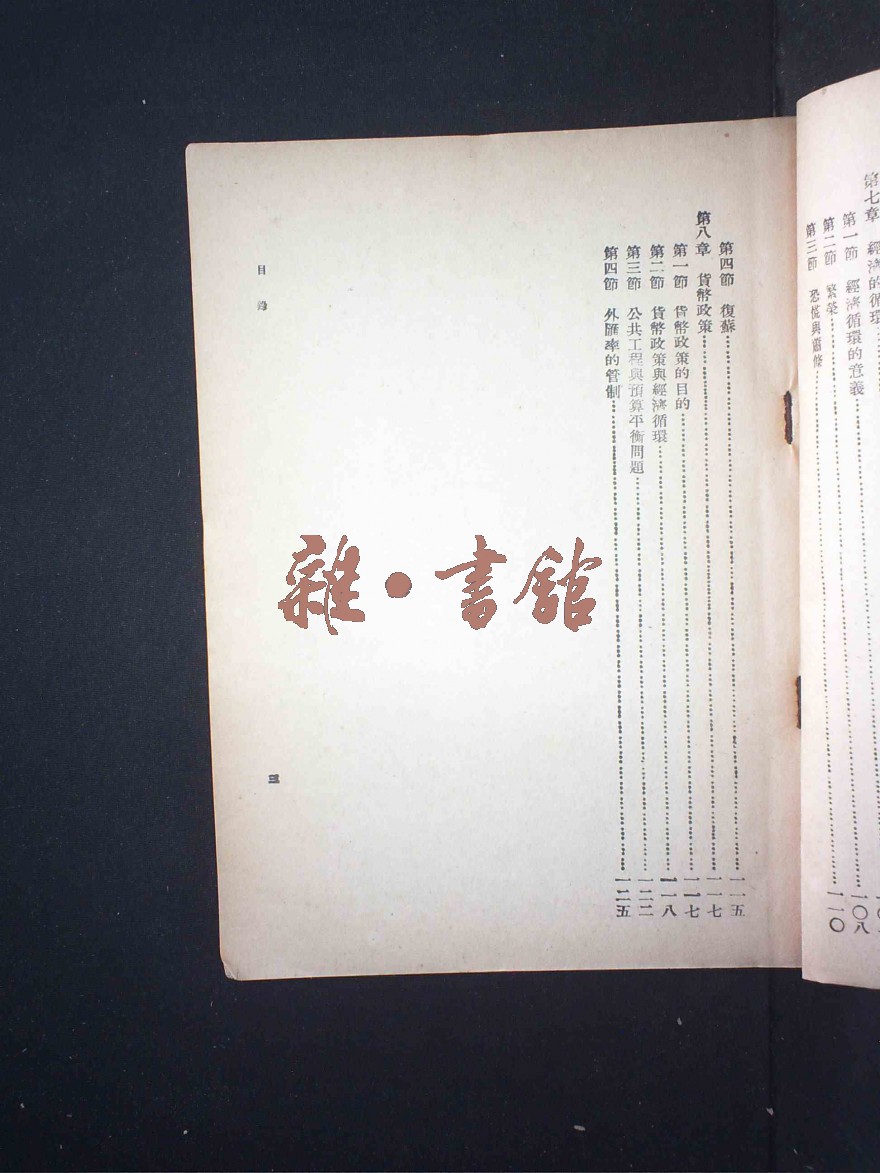 第七章 經濟的循環
第一節 經濟循環的意義
第二節 繁榮……一〇八
第三節 恐慌與蕭條……一一〇
第四節 復蘇……一一五
第八章 貨幣政策……一一七
第一節 貨幣政策的目的……一一七
第二節 貨幣政策與經濟循環……一一八
第三節 公共工程與預算平衡問題……一二二
第四節 外匯率的管制……一二五
目錄
三
雜·書館